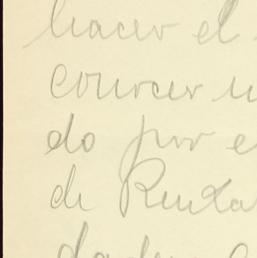 hacer el
conocer u
do por e
de Renta